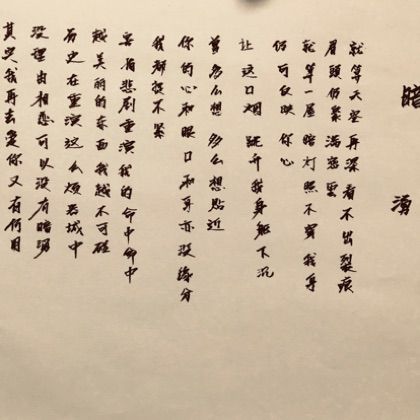 暗湧
就算天空再深看不出裂痕
眉頭仍聚满密雲
就算一屋暗灯照不穿我身
仍可反映你心
让这口烟跳升我身躯下沉
曾多么想多么想贴近
你的心和眼口和耳亦没缘分
我都捉不紧
害怕悲剧重演我的命中命中
越美丽的东西我越不可碰
历史在重演这么烦嚣城中
没理由相恋可以没有暗湧
其实我再去爱你又有何用